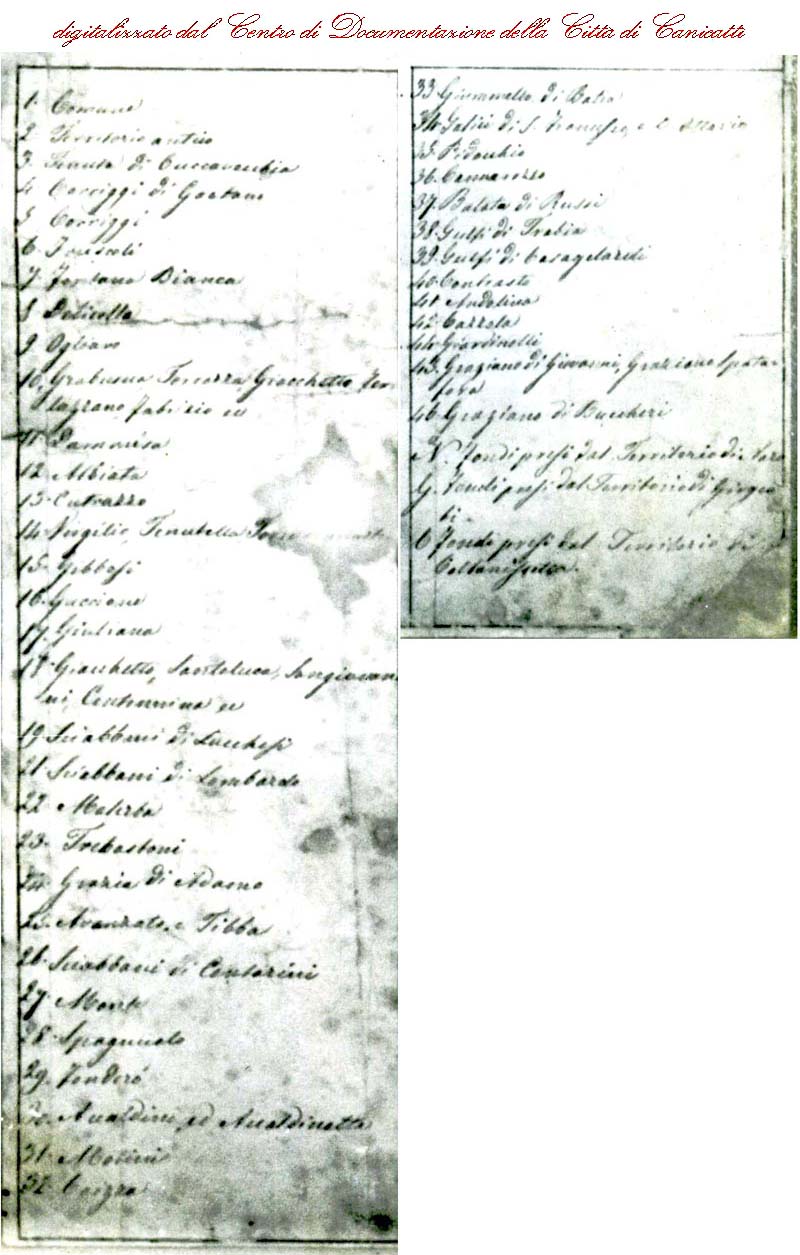 digitalizzato dal Centro di Documentazione della Città di Canicattì
1. Comune
2 Territorio antico
3. Tenuta di Cuccavecchia
4 Corriggi di Gaetano
5 Corriggi
6
7 Fontana Bianca
8 Deliella
9 Ogliaro
10, Grabusua Torrazza Giacchetto
Fabrizio ec
11 Dammisa
12 Albiata
13 Cutrazzo
14 Virgilio, Tenutella
15. Gebbesi
16. Guccione
17. Giuliana
18 Giacchetto, Santoluca, Sangiovan
ni, Centunnina ec
19. Sciabbani di Lucchesi
21. Sciabbani di Lombardo
22 Molerba
23. Trebastoni
24. Grazia di Adamo
25. Avanzato, e Tibba
26. Sciabbani di Contarini
27 Monte
28. Spagnuolo
29. Fonderò
30. Aualdini, ed Aualdinetta
31. Molini
32
33. Giummello di Balia
34. di S. Francesco, e
35. Pidocchio
36. Cannarozzo
37. Balata di Russi
38. Gulfi di Trabia
39. Gulfi di Casagelardi
40. Contrasto
41. Andolina
42. Cazzola
44. Giardinelli
45. Graziano di Giovanni, Graziano Spata-
fora
46. Graziano di Buccheri
N. Fondi presi dal Territorio di Naro
G. Fondi presi dal Territorio di Girgen
ti
C Fondi presi dal Territorio di
Caltanissetta.